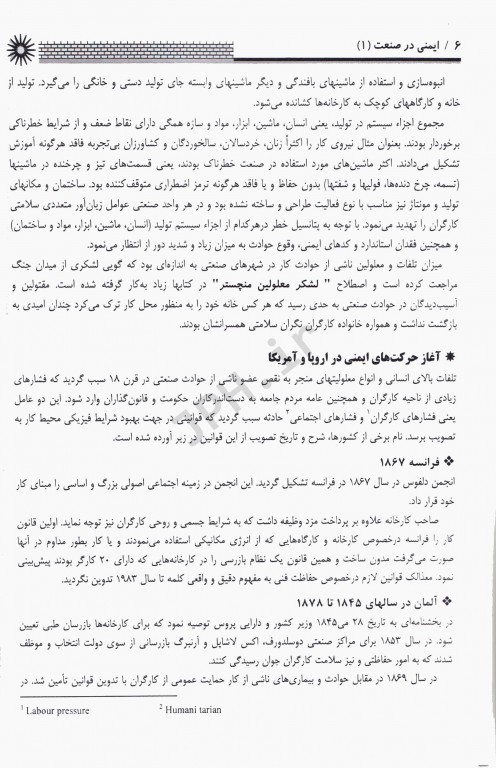 ۶ / ایمنی در صنعت (۱)
انبوه‌سازی و استفاده از ماشینهای بافندگی و دیگر ماشینهای وابسته جای تولید دستی و خانگی را می‌گیرد. تولید از
خانه و کارگاههای کوچک به کارخانه‌ها کشانده می‌شود.
مجموع اجزاء سیستم در تولید، یعنی انسان، ماشین، ابزار، مواد و سازه همگی دارای نقاط ضعف و از شرایط خطرناکی
برخوردار بودند. بعنوان مثال نیروی کار را اکثراً زنان، خردسالان، سالخوردگان و کشاورزان بی‌تجربه فاقد هرگونه آموزش
تشکیل می‌دادند. اکثر ماشین‌های مورد استفاده در صنعت خطرناک بودند، یعنی قسمت‌های تیز و چرخنده در ماشینها
(تسمه، چرخ دنده‌ها، فولیها و شفتها) بدون حفاظ و یا فاقد هرگونه ترمز اضطراری متوقف‌کننده بود. ساختمان و مکانهای
تولید و مونتاژ نیز مناسب با نوع فعالیت طراحی و ساخته نشده بود و در هر واحد صنعتی عوامل زیان‌آور متعددی سلامتی
کارگران را تهدید می‌نمود. با توجه به پتانسیل خطر درهرکدام از اجزاء سیستم تولید (انسان، ماشین، ابزار، مواد و ساختمان)
و همچنین فقدان استاندارد و کدهای ایمنی، وقوع حوادث به میزان زیاد و شدید دور از انتظار نمی‌نمود.
میزان تلفات و معلولین ناشی از حوادث کار در شهرهای صنعتی به اندازه‌ای بود که گویی لشکری از میدان جنگ
مراجعت کرده است و اصطلاح " لشکر معلولین منچستر" در کتابها زیاد به‌کار گرفته شده است. مقتولین و
آسیب‌دیدگان در حوادث صنعتی به حدی رسید که هر کس خانه خود را به منظور محل کار ترک می‌کرد چندان امیدی به
بازگشت نداشت و همواره خانواده کارگران نگران سلامتی همسرانشان بودند.
✷ آغاز حرکت‌های ایمنی در اروپا و آمریکا
تلفات بالای انسانی و انواع معلولیتهای منجر به نقص عضو ناشی از حوادث صنعتی در قرن ۱۸ سبب گردید که فشارهای
زیادی از ناحیه کارگران و همچنین عامه مردم جامعه به دست‌اندرکاران حکومت و قانون‌گذاران وارد شود. این دو عامل
یعنی فشارهای کارگران¹ و فشارهای اجتماعی² حادثه سبب گردید که قوانینی در جهت بهبود شرایط فیزیکی محیط کار به
تصویب برسد. نام برخی از کشورها، شرح و تاریخ تصویب از این قوانین در زیر آورده شده است.
❖ فرانسه ۱۸۶۷
انجمن دلفوس در سال ۱۸۶۷ در فرانسه تشکیل گردید. این انجمن در زمینه اجتماعی اصولی بزرگ و اساسی را مبنای کار
خود قرار داد.
صاحب کارخانه علاوه بر پرداخت مزد وظیفه داشت که به شرایط جسمی و روحی کارگران نیز توجه نماید. اولین قانون
کار را فرانسه درخصوص کارخانه و کارگاه‌هایی که از انرژی مکانیکی استفاده می‌نمودند و یا کار بطور مداوم در آنها
صورت می‌گرفت مدون ساخت و همین قانون یک نظام بازرسی را در کارخانه‌هایی که دارای ۲۰ کارگر بودند پیش‌بینی
نمود. معذالک قوانین لازم درخصوص حفاظت فنی به مفهوم دقیق و واقعی کلمه تا سال ۱۹۸۳ تدوین نگردید.
❖ آلمان در سالهای ۱۸۴۵ تا ۱۸۷۸
در بخشنامه‌ای به تاریخ ۲۸ می۱۸۴۵ وزیر کشور و دارایی پروس توصیه نمود که برای کارخانه‌ها بازرسان طبی تعیین
شود. در سال ۱۸۵۳ برای مراکز صنعتی دوسلدورف، اکس لاشاپل و آرنبرگ بازرسانی از سوی دولت انتخاب و موظف
شدند که به امور حفاظتی و نیز سلامت کارگران جوان رسیدگی کنند.
در سال ۱۸۶۹ در مقابل حوادث و بیماری‌های ناشی از کار حمایت عمومی از کارگران با تدوین قوانین تأمین شد. در
¹ Labour pressure ² Humani tarian